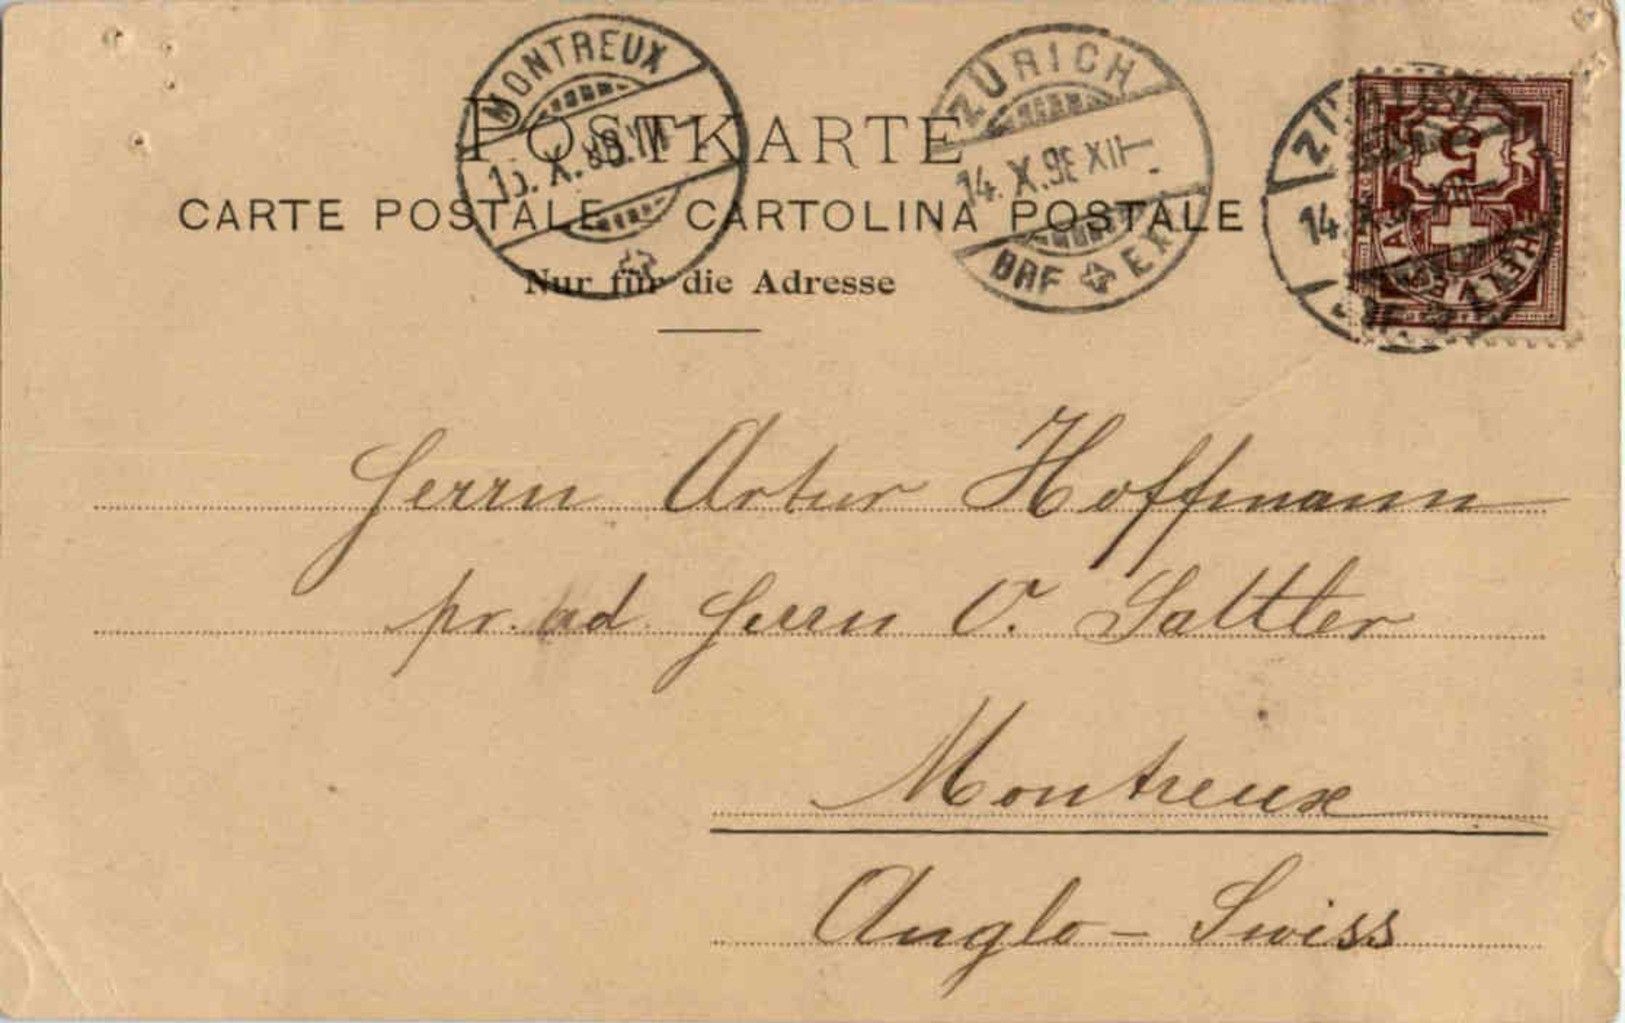 MONTREUX
ZÜRICH
POSTKARTE
14. X. 98 XII
CARTE POSTALE CARTOLINA POSTALE
BRF EXP
Nur für die Adresse
5
HELVETIA
14.
Herrn Artur Hoffmann
pr. ad. Herrn O. Sattler
Montreux
Anglo-Swiss